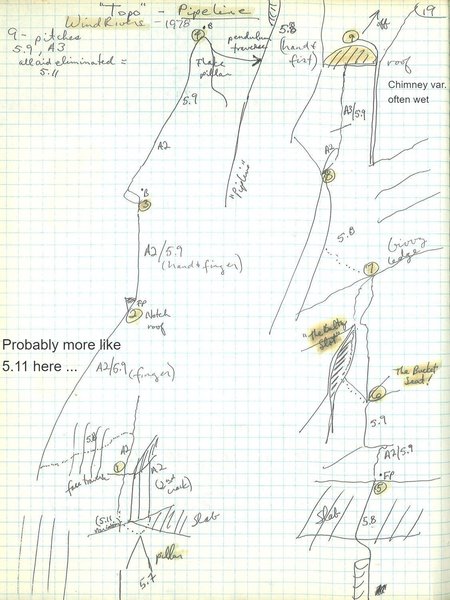 "Topo" - Pipeline
Wind Rivers - 1978
9 - pitches
5.9, A3
all aid eliminated =
5.11
B
pendulum
traverse
Flake
pillar
5.9
A2
"Pipeline"
B
3
A2/5.9
(hand & finger)
FP
2
Notch
roof
Probably more like
5.11 here ...
A2/5.9
(finger)
5.8
A2
1
A2
(5.11
Slab
pillar
5.7
19
5.8
(hand &
fist)
9
off
roof
Chimney var.
often wet
A3/5.9
A3
8
5.8
7
Bivvy
Ledge
"The Bulky
Slot"
The Bucket
Seat!
6
5.9
A2/5.9
FP
5
Slab
5.8